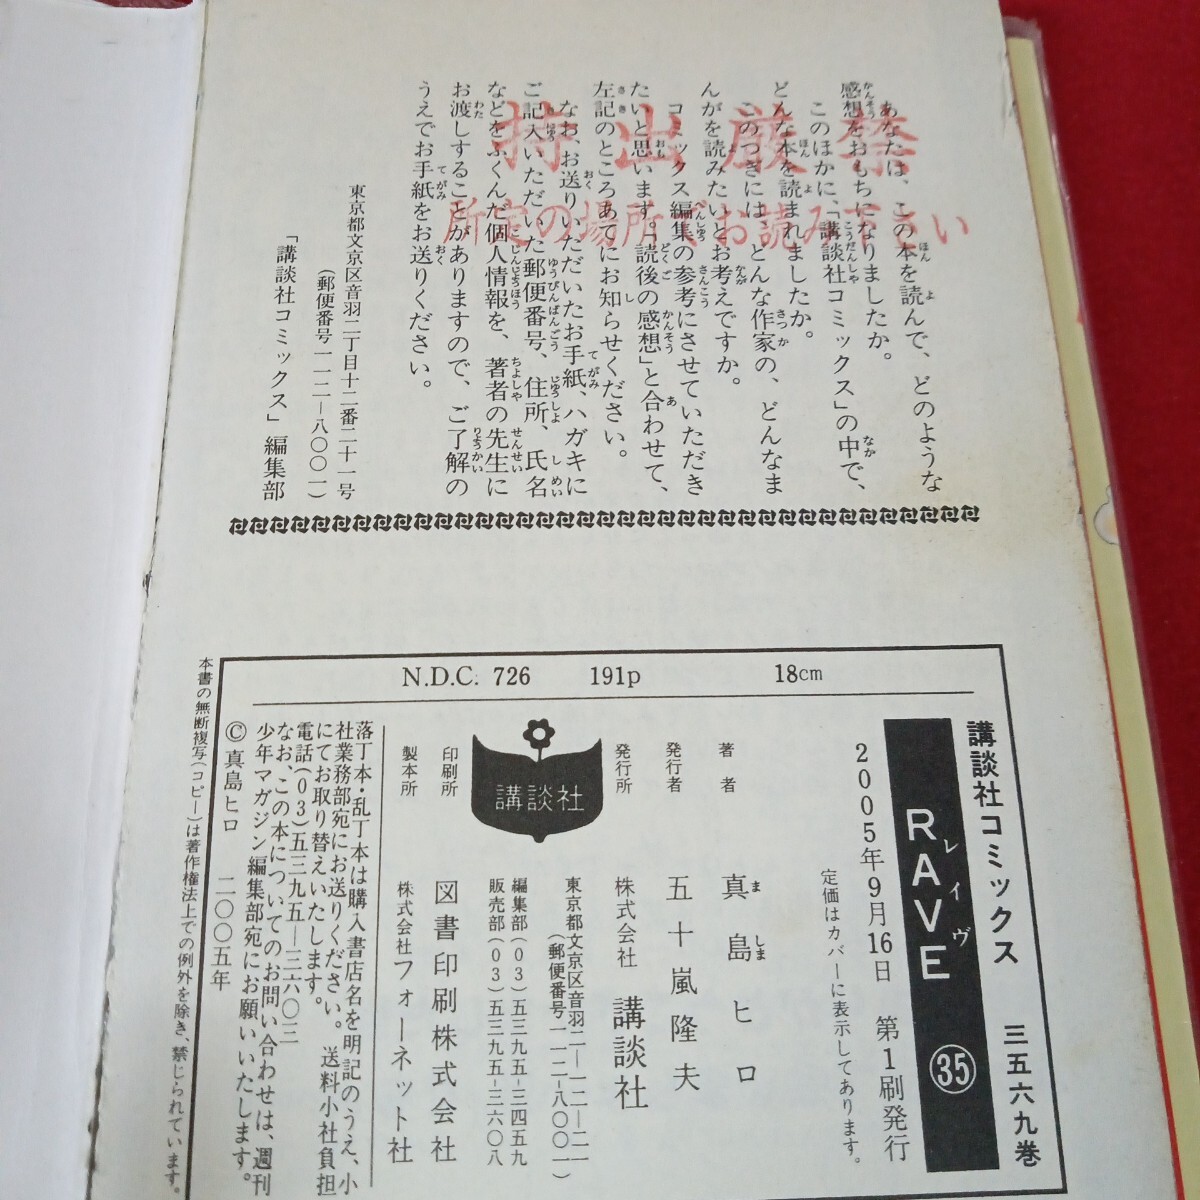 あなたは、この本を読んで、どのような
感想をおもちになりましたか。
このほかに、「講談社コミックス」の中で、
どんな本を読まれましたか。
このつぎには、どんな作家の、どんなま
んがを読みたいとお考えですか。
コミックス編集の参考にさせていただき
たいと思います。「読後の感想」と合わせて、
左記のところあてにお知らせください。
なお、お送りいただいたお手紙、ハガキに
ご記入いただいた郵便番号、住所、氏名
などをふくんだ個人情報を、著者の先生に
お渡しすることがありますので、ご了解の
うえでお手紙をお送りください。
東京都文京区音羽二丁目十二番二十一号
(郵便番号一一二―八〇〇一)
「講談社コミックス」編集部
持出厳禁
所定の場所でお読み下さい
N.D.C. 726 191p 18cm
講談社コミックス 三五六九巻
RAVE ㉟
レイヴ
2005年9月16日 第1刷発行
定価はカバーに表示してあります。
著者 真島ヒロ
発行者 五十嵐隆夫
発行所 株式会社 講談社
東京都文京区音羽二―一二―二一
(郵便番号一一二―八〇〇一)
編集部(03)五三九五―三四五九
販売部(03)五三九五―三六〇八
講談社
印刷所 図書印刷株式会社
製本所 株式会社フォーネット社
落丁本・乱丁本は購入書店名を明記のうえ、小
社業務部宛にお送りください。送料小社負担
にてお取り替えいたします。
電話(03)五三九五―三六〇三
なお、この本についてのお問い合わせは、週刊
少年マガジン編集部宛にお願いいたします。
Ⓒ真島ヒロ 二〇〇五年
本書の無断複写(コピー)は著作権法上での例外を除き、禁じられています。